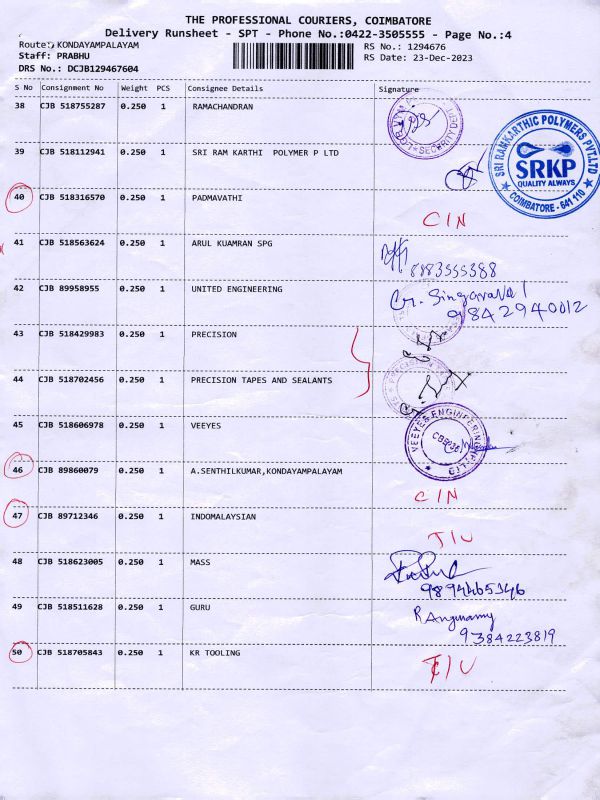 THE PROFESSIONAL COURIERS, COIMBATORE
Delivery Runsheet - SPT - Phone No.:0422-3505555 - Page No.:4
Route: KONDAYAMPALAYAM RS No.: 1294676
Staff: PRABHU RS Date: 23-Dec-2023
DRS No.: DCJB129467604
S No Consignment No Weight PCS Consignee Details Signature
38 CJB 518755287 0.250 1 RAMACHANDRAN
SECURITY
39 CJB 518112941 0.250 1 SRI RAM KARTHI POLYMER P LTD
SRI RAMKARTHIC POLYMERS PVT.LTD
SRKP
QUALITY ALWAYS
COIMBATORE - 641 110
40 CJB 518316570 0.250 1 PADMAVATHI
C/N
41 CJB 518563624 0.250 1 ARUL KUAMRAN SPG
8883555388
42 CJB 89958955 0.250 1 UNITED ENGINEERING
G. Singaravel
9842940012
43 CJB 518429983 0.250 1 PRECISION
44 CJB 518702456 0.250 1 PRECISION TAPES AND SEALANTS
45 CJB 518606978 0.250 1 VEEYES
VEEYES ENGINEERING
46 CJB 89860079 0.250 1 A.SENTHILKUMAR,KONDAYAMPALAYAM
C/N
47 CJB 89712346 0.250 1 INDOMALAYSIAN
T/U
48 CJB 518623005 0.250 1 MASS
9894465346
49 CJB 518511628 0.250 1 GURU
9384223819
50 CJB 518705843 0.250 1 KR TOOLING
T/U